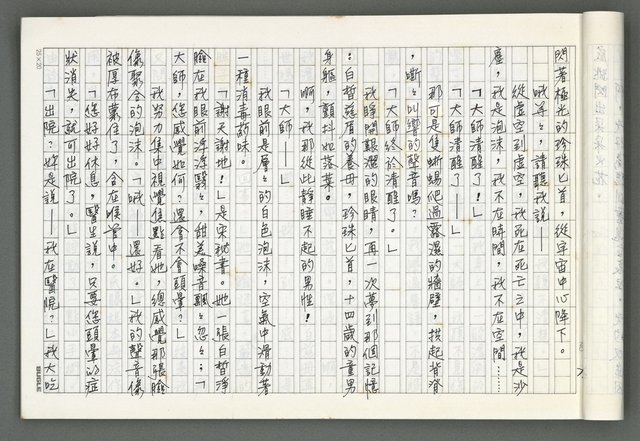 閃著極光的珍珠匕首，從宇宙中心降下。
哦等々，請聽我說——
從虛空到虛空，我死在死亡之中，我是沙
塵，我是泡沫，我不在時間，我不在空間……
「大師清醒了！」
「大師清醒了——」
那可是隻蜥蜴爬過露濕的牆壁，拱起背脊
，嘶々叫響的聲音嗎？
「大師終於清醒了。」
我睜開艱澀的眼睛，再一次夢到那個記憶
：白皙 的養母，珍珠匕首，十四歲的童男
身軀，顫抖如落葉。
啊，我那從此靜睡不起的男性！
「大師——」
我眼前是層々的白色泡沫，空氣中滑動著
一種消毒葯味。
「謝天謝地！」是宋秘書。她一張白皙淨
臉在我眼前浮浮 ，甜美嗓音飄々忽々：「
大師，您感覺如何？還會不會頭暈？」
我努力集中視覺焦點看她，總感覺那張臉
像聚合的泡沫。「哦——還好。」我的聲音像
被厚布蒙住了，含在喉管中。
「您好好休息，醫生說，只要您頭暈的症
狀消失，就可出院了。」
「出院？妳是說——我在醫院？」我大吃
25×20